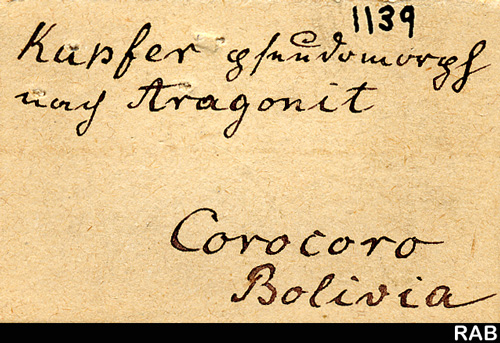 1139
Kupfer pseudomorph
nach Aragonit
Corocoro
Bolivia
RAB